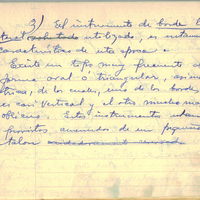 3) El instrumento de borde l
teral utilizado, es instam
característica de esta época.
Existe un tipo muy frecuente d
forma oval o triangular, asimé
trica, de los cuales, uno de los bordes
es casi vertical y el otro mucho más
oblicuo. Estos instrumentos estan
provistos anversos de un pequeño
talon